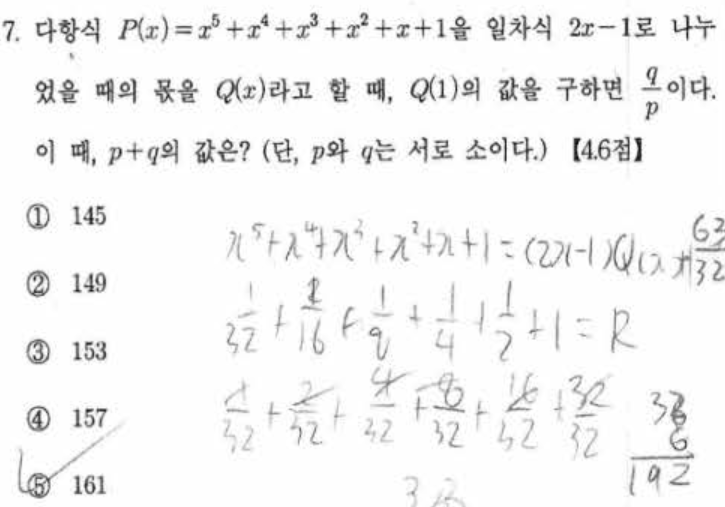 7. 다항식 P(x)=x⁵+x⁴+x³+x²+x+1을 일차식 2x-1로 나누
었을 때의 몫을 Q(x)라고 할 때, Q(1)의 값을 구하면 q/p이다.
이 때, p+q의 값은? (단, p와 q는 서로 소이다.) 【4.6점】
① 145
② 149
③ 153
④ 157
⑤ 161
x⁵+x⁴+x³+x²+x+1=(2x-1)Q(x)+63/32
1/32+1/16+1/8+1/4+1/2+1=R
1/32+2/32+4/32+8/32+16/32+32/32
32
6
192